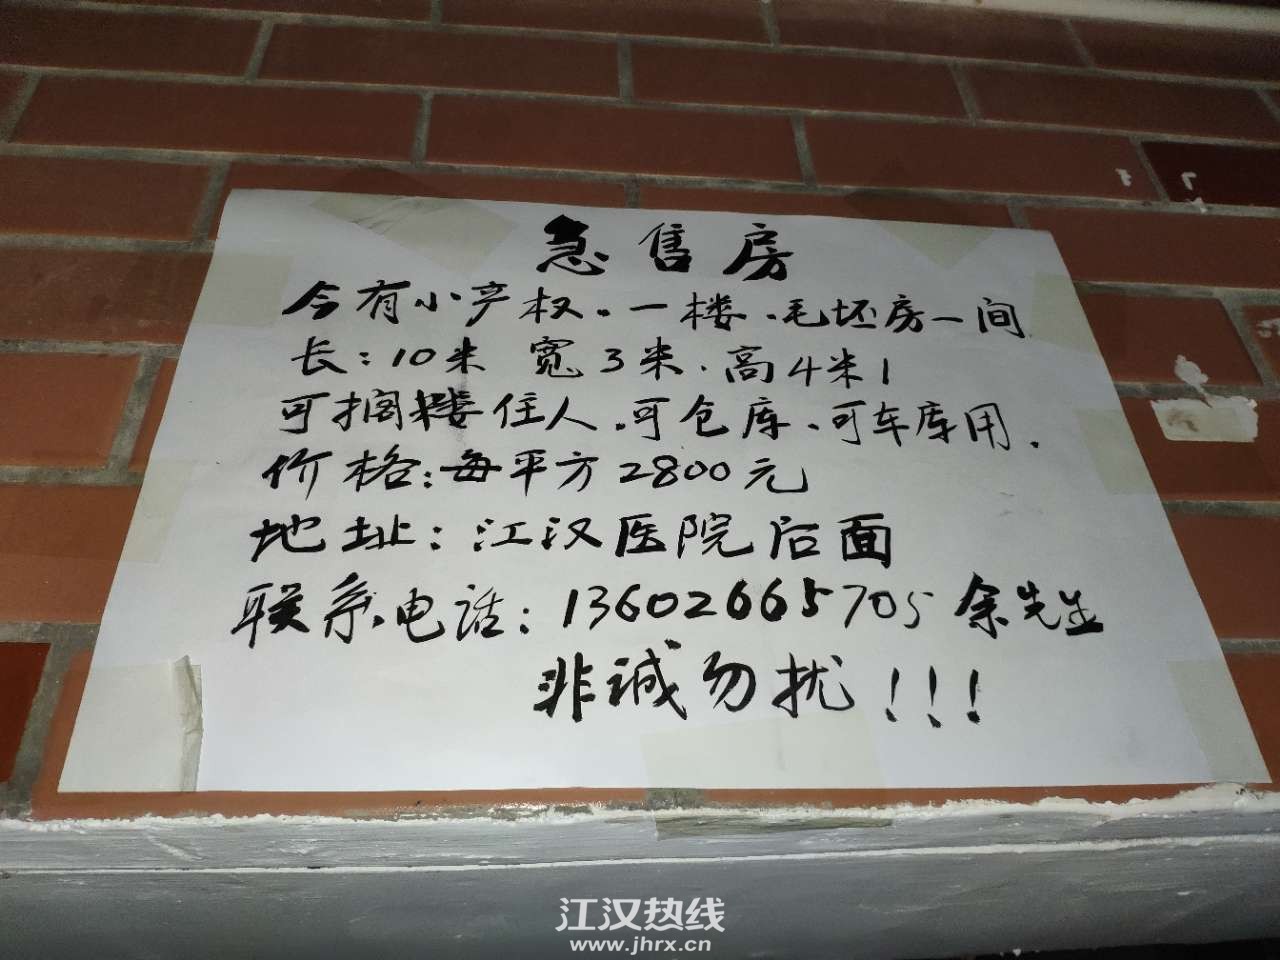 急售房
今有小产权.一楼.毛坯房一间
长:10米 宽3米.高4米1
可搁楼住人.可仓库.可车库用.
价格:每平方2800元
地址:江汉医院后面
联系电话:13602665705 余先生
非诚勿扰!!!
江汉热线
www.jhrx.cn